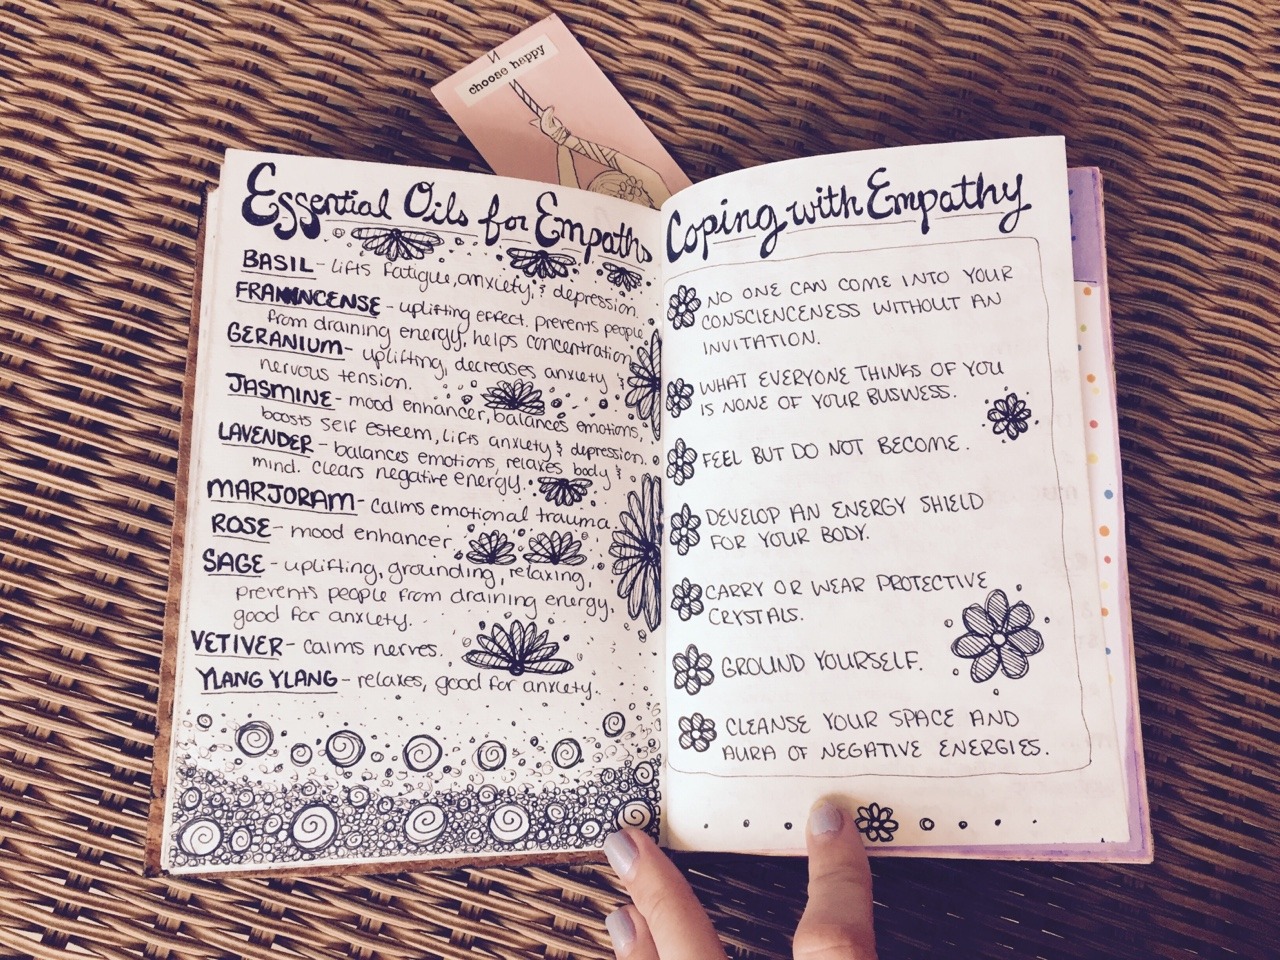 choose happy
Essential Oils for Empaths
BASIL - lifts fatigue, anxiety, & depression.
FRANINCENSE - uplifting effect. prevents people
from draining energy, helps concentration.
GERANIUM - uplifting, decreases anxiety &
nervous tension.
JASMINE - mood enhancer, balances emotions,
boosts self esteem, lifts anxiety & depression.
LAVENDER - balances emotions, relaxes body &
mind. clears negative energy.
MARJORAM - calms emotional trauma.
ROSE - mood enhancer
SAGE - uplifting, grounding, relaxing,
prevents people from draining energy,
good for anxiety.
VETIVER - calms nerves.
YLANG YLANG - relaxes, good for anxiety.
Coping with Empathy
NO ONE CAN COME INTO YOUR
CONSCIENCENESS WITHOUT AN
INVITATION.
WHAT EVERYONE THINKS OF YOU
IS NONE OF YOUR BUSINESS.
FEEL BUT DO NOT BECOME.
DEVELOP AN ENERGY SHIELD
FOR YOUR BODY.
CARRY OR WEAR PROTECTIVE
CRYSTALS.
GROUND YOURSELF.
CLEANSE YOUR SPACE AND
AURA OF NEGATIVE ENERGIES.